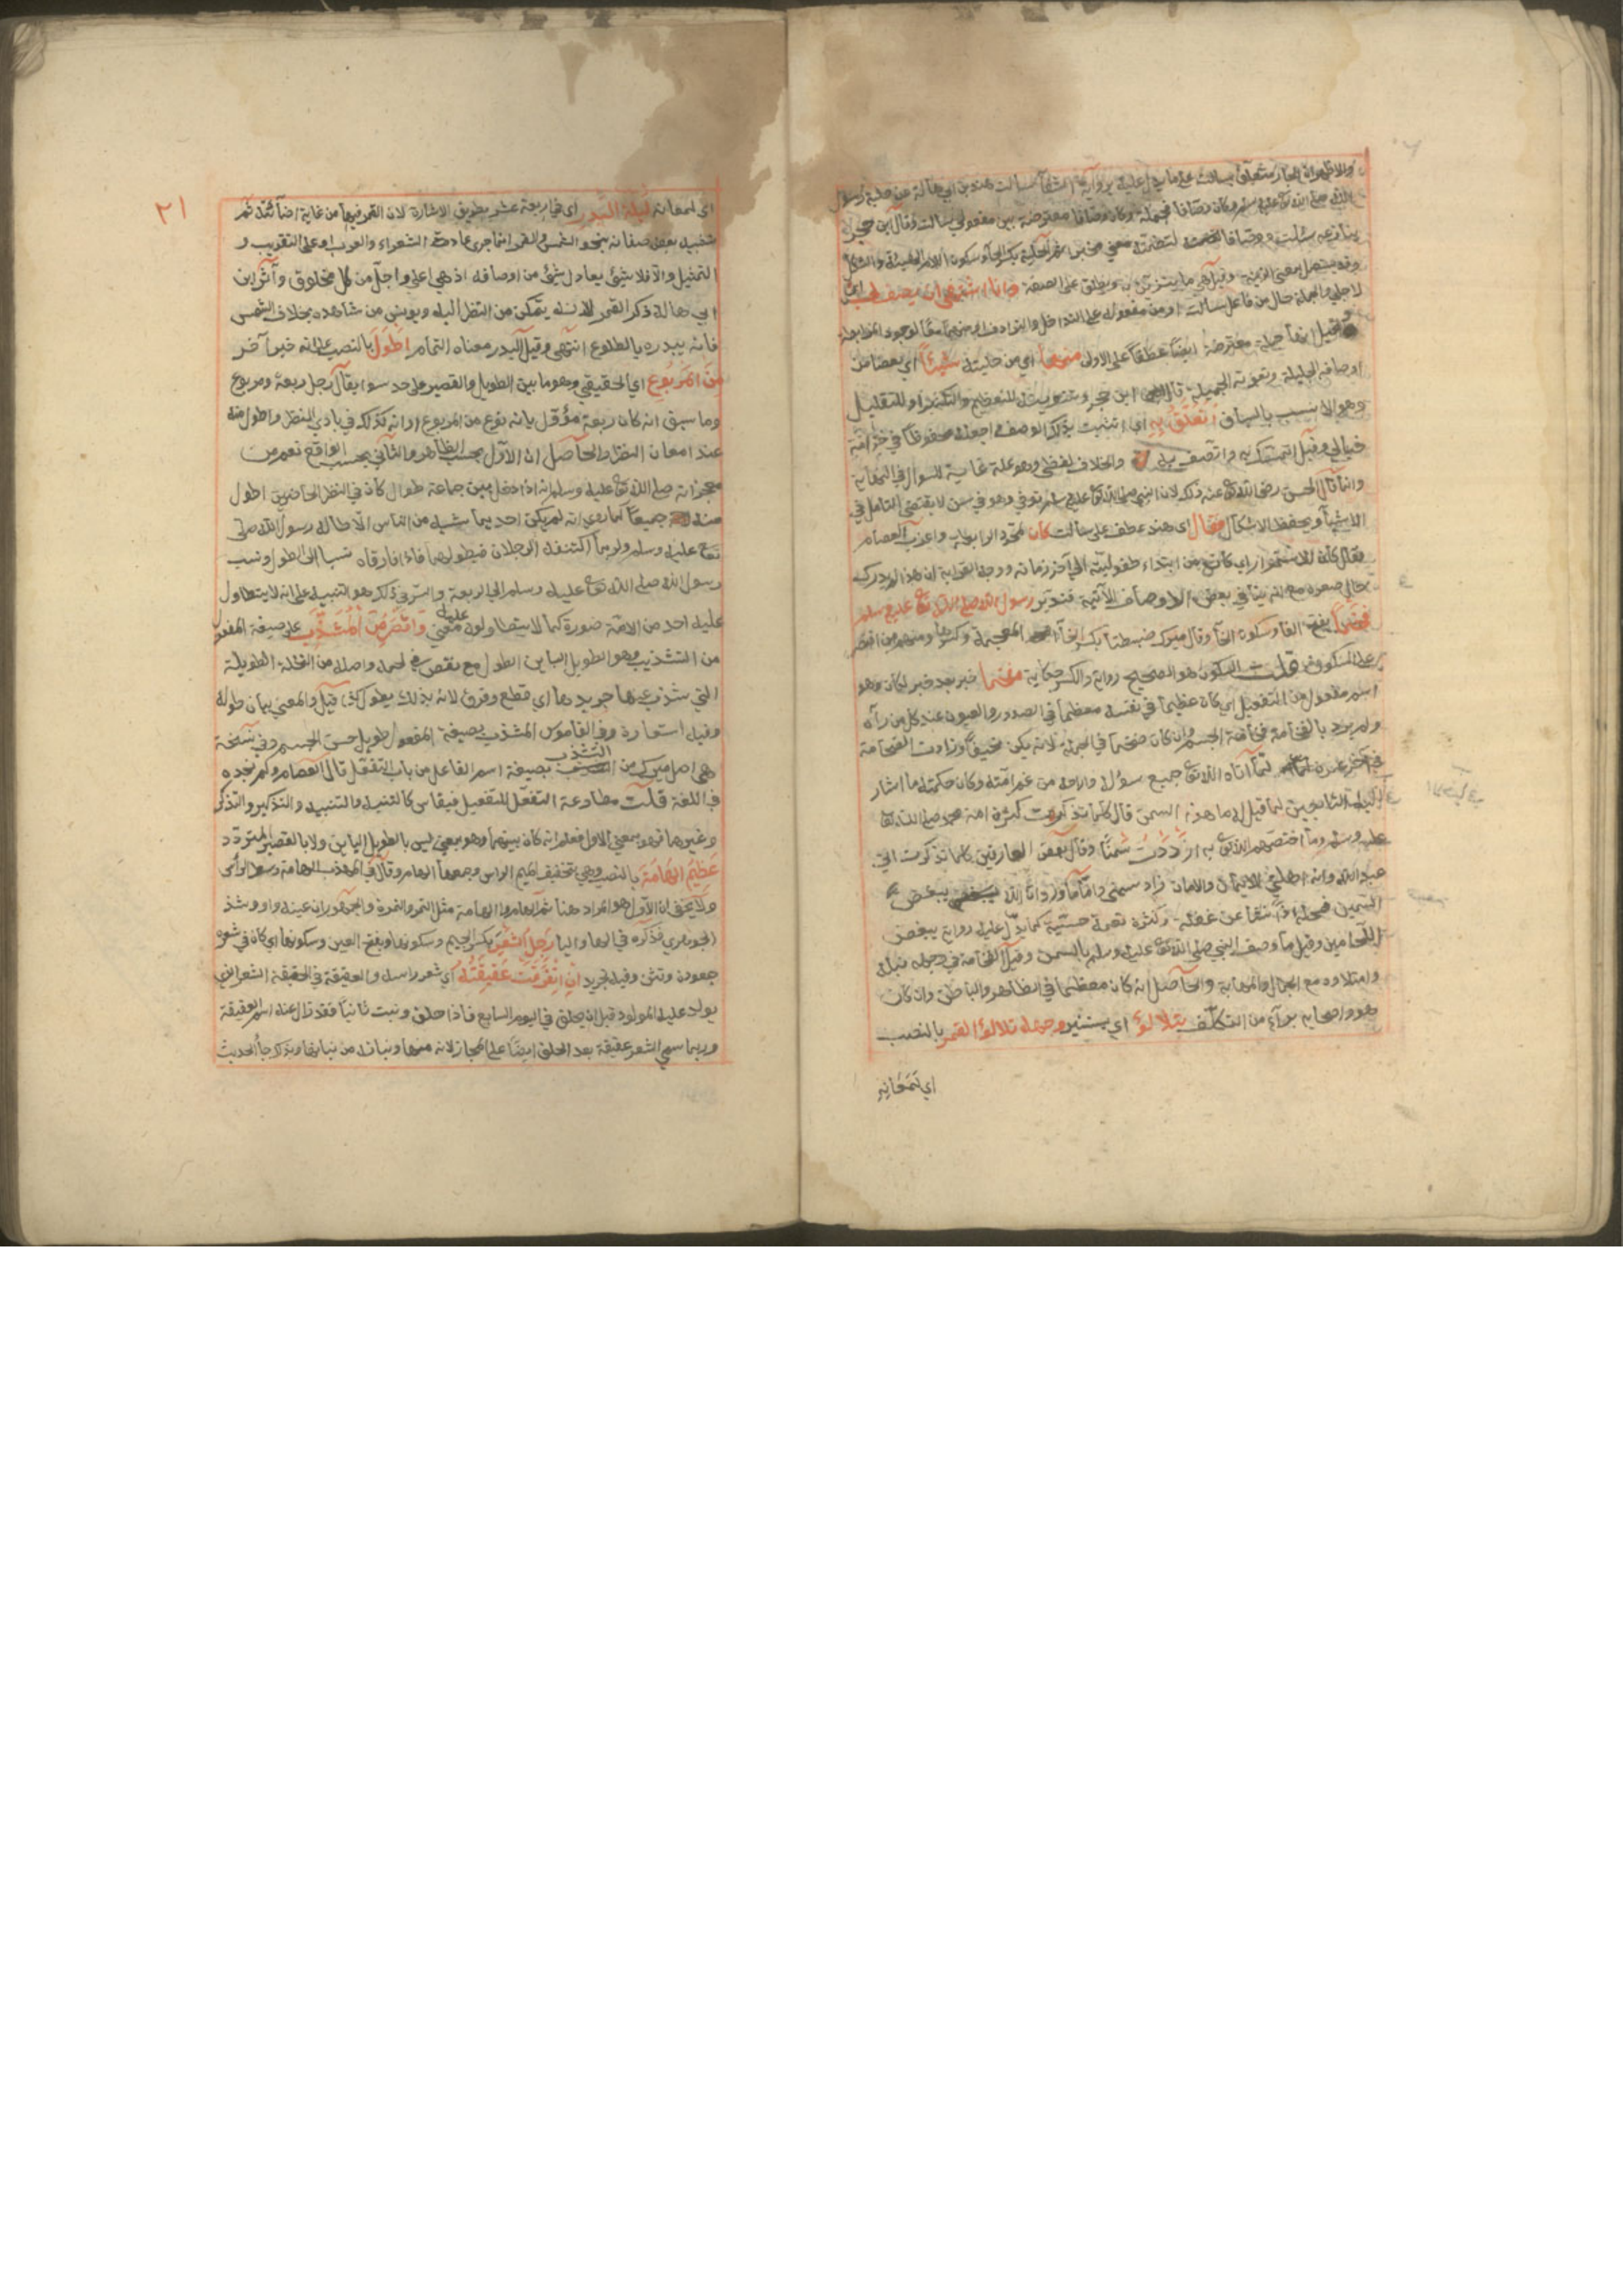 والاظهر انه
الله صلى الله تع عليه وسلم وكان وصافا جملة وكان وصافا معترضة بين مفعولي سالت وقال ابن حجر
وقد يستعمل بمعنى الزينة وقيل هي ما يتزين به ويطلق على الصفة وانا اشتهي ان يصف لي اي
لاجلي والجملة حال من فاعل سالت او من مفعوله على التداخل والترادف او منهما معا لوجود الرابطة
وقيل انها جملة معترضة ايضا عطفا على الاولى منها اي من حليته شيئا اي بعضا من
اوصافه الجليلة ونعوته الجميلة قال ابن حجر وتنوينه للتعظيم والتكثير او للتقليل
وهو الانسب بالسياق اتعلق به اي اتشبث بذلك الوصف واجعله محفوظا في خزانة
خيالي وقيل اتمسك به واتصف به والخلاف لفظي وهو علة غائية للسوال في النهاية
وانما قال الحسن رضى الله تع عنه ذلك لان النبي صلى الله تع عليه وسلم توفي وهو في سن لا يقتضي التامل في
الاشيا ويحفظ الاشكال فقال اي هند عطف على سالت كان لمجرد الرابطة واغرب العصام
فقال كان للاستمرار اي كانت من ابتداء طفوليته الى آخر زمانه ووجه الغرابة ان هذا لم يدرك
حال صغره مع انه ينافي بعض الاوصاف الآتية فتدبر رسول الله صلى الله تع عليه وسلم
فخما بفتح الفا وسكون الخا وقال ميرك ضبطنا بكسر الخا المعجمة وكسرها ومنهم من اقتصر
على السكون قلت السكون هو الصحيح رواية والكسر حكاية مفخما خبر بعد خبر لكان وهو
اسم مفعول من التفعيل اي كان عظيما في نفسه معظما في الصدور والعيون عند كل من رآه
ولم يرد بالفخامة فخامة الجسم وان كان ضخما في الجملة لانه لم يكن نحيفا وزادت الفخامة
في آخر عمره لما آتاه الله تع جميع سؤله واراحه من غم امته وكان حكمته ما اشار
اليه التابعين لما قيل له ما هذه السمن قال كلما تذكرت كثرة امة محمد صلى الله تعا
عليه وسلم وما اختصهم الله تع به ازددت سمنا وقال بعض العارفين كلما تذكرت اني
عبد الله وانه اهلني للايمان والامان زاد سمني واما ما ورد ان الله يبغض
السمين فمحله اذا نشا عن غفلة وكثرة نعمة حسية كما يدل عليه رواية يبغض
اللحامين وقيل ما وصف النبي صلى الله تع عليه وسلم بالسمن وقيل الفخامة في وجهه نبله
وامتلاوه مع الجمال والمهابة والحاصل انه كان معظما في الظاهر والباطن وان كان
هو واصحابه برآء من التكلف يتلألؤ اي يستنير وجهه تلألؤ القمر بالنصب
اي لمعانه
٢١
اي لمعانه ليلة البدر اي في اربعة عشر بطريق الاشارة لان القمر فيها من غاية اضآئته ثم
تشبيه بعض صفاته بنحو الشمس والقمر انما جرى على عادة الشعراء والعرب او على التقريب و
التمثيل والا فلا شئ يعادل شئ من اوصافه اذ هي اعلى واجل من كل مخلوق وآثر ابن
ابي هالة ذكر القمر لانه يتمكن من النظر اليه ويونس من شاهده بخلاف الشمس
فانه يبدره بالطلوع انتهى وقيل البدر معناه التمام اطول بالنصب على انه خبر آخر
من المربوع اي الحقيقي وهو ما بين الطويل والقصير على حد سوا يقال رجل ربعة ومربوع
وما سبق انه كان ربعة مؤول بانه نوع من المربوع او انه كذلك في بادي النظر واطول منه
عند امعان النظر والحاصل ان الاول بحسب الظاهر والثاني بحسب الواقع نعم من
معجزاته صلى الله تع عليه وسلم انه اذا دخل بين جماعة طوال كان في النظر الحاضرين اطول
منه جميعا لما روي انه لم يكن احد يماشيه من الناس الا طاله رسول الله صلى
تع عليه وسلم ولربما اكتنفه الرجلان فيطولهما فاذا فارقاه نسبا الى الطول ونسب
رسول الله صلى الله تعا عليه وسلم الى الربعة والسر في ذلك هو التنبيه على انه لا يتطاول
عليه احد من الامة صورة كما لا يتطاولون عليه معنى واقصر من المشذب على صيغة المفعول
من التشذيب وهو الطويل الباين الطول مع نقص في لحمه واصله من النخلة الطويلة
التي شذب عنها جريدها اي قطع وفرق لانه بذلك يطول كذا قيل والمعنى بيان طوله
وفيه استعارة وفي القاموس المشذب بصيغة المفعول طويل حسن الجسم وفي نسخة
هي اصل ميرك من التشذب بصيغة اسم الفاعل من باب التفعل قال العصام ولم نجده
في اللغة قلت مطاوعة التفعل للتفعيل فيقاس كالتنبه والتنبيه والتذكير والتذكر
وغيرهما فهو بمعنى الاول فعلم انه كان بينهما وهو بمعنى ليس بالطويل الباين ولا بالقصير المتردد
عظيم الهامة بالنصب وهي بتخفيف الميم الراس وجمعها الهام وقال في المهذب الهامة وسط الراس
ولا يخفى ان الاول هو المراد هنا ثم الهام والهامة مثل التمر والتمرة والجمهور ان عينه واو وشذ
الجوهري فذكره في الها واليا رجل الشعر بكسر الجيم وسكونها وبفتح العين وسكونها اي كان في شعره
جعودة وتثن وقيل تجريد ان انفرقت عقيقته اي شعر راسه والعقيقة في الحقيقة الشعر الذي
يولد عليه المولود قبل ان يحلق في اليوم السابع فاذا حلق ونبت ثانيا فقد زال عنه اسم العقيقة
وربما سمي الشعر عقيقة بعد الحلق ايضا على المجاز لانه منها ونباته من نباتها وبذلك جا الحديث